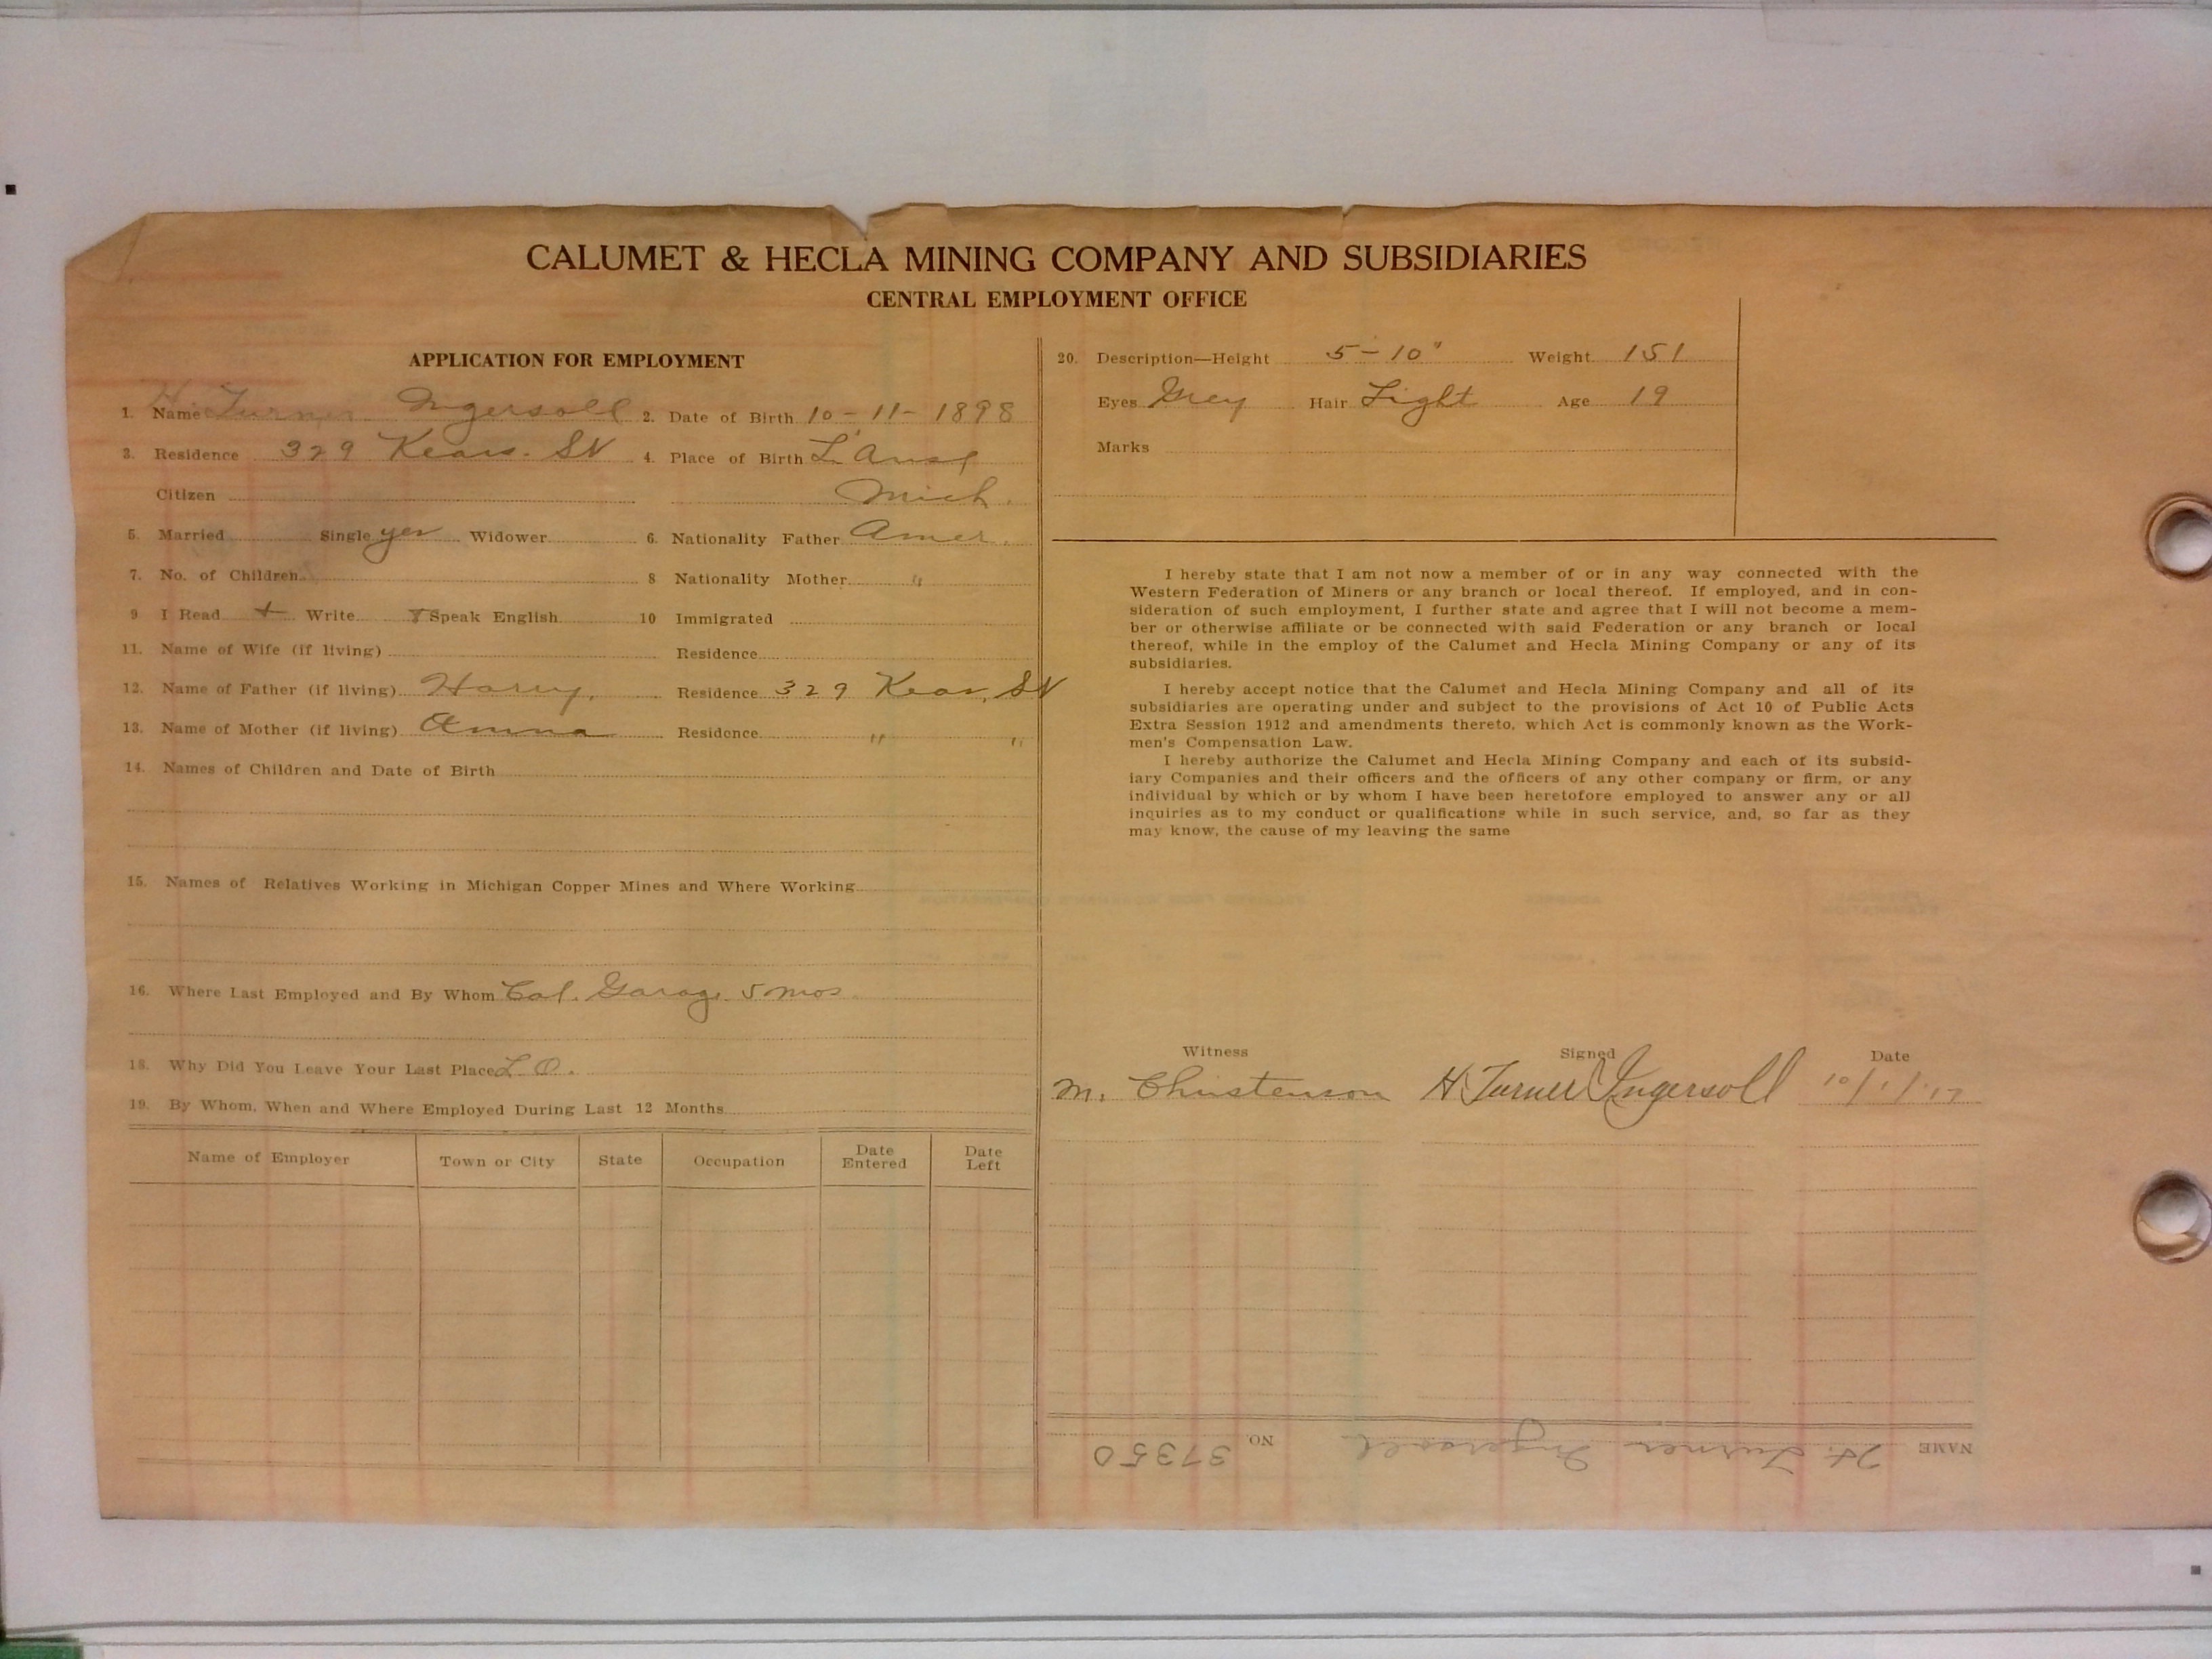 CALUMET & HECLA MINING COMPANY AND SUBSIDIARIES
CENTRAL EMPLOYMENT OFFICE
APPLICATION FOR EMPLOYMENT
1. Name H. Turner Ingersoll 2. Date of Birth 10-11-1898
3. Residence 329 Kears. St 4. Place of Birth L'Anse
Citizen Mich.
5. Married Single yes Widower 6. Nationality Father Amer.
7. No. of Children 8 Nationality Mother "
9 I Read + Write + Speak English 10 Immigrated
11. Name of Wife (if living) Residence
12. Name of Father (if living) Harry. Residence 329 Kear. St
13. Name of Mother (if living) Anna Residence " "
14. Names of Children and Date of Birth
15. Names of Relatives Working in Michigan Copper Mines and Where Working
16. Where Last Employed and By Whom Cal. Garage 5 mos
18. Why Did You Leave Your Last Place L. O.
19. By Whom, When and Where Employed During Last 12 Months
Name of Employer Town or City State Occupation Date Entered Date Left
20. Description—Height 5-10" Weight 151
Eyes Grey Hair Light Age 19
Marks
I hereby state that I am not now a member of or in any way connected with the
Western Federation of Miners or any branch or local thereof. If employed, and in con-
sideration of such employment, I further state and agree that I will not become a mem-
ber or otherwise affiliate or be connected with said Federation or any branch or local
thereof, while in the employ of the Calumet and Hecla Mining Company or any of its
subsidiaries.
I hereby accept notice that the Calumet and Hecla Mining Company and all of its
subsidiaries are operating under and subject to the provisions of Act 10 of Public Acts
Extra Session 1912 and amendments thereto, which Act is commonly known as the Work-
men's Compensation Law.
I hereby authorize the Calumet and Hecla Mining Company and each of its subsid-
iary Companies and their officers and the officers of any other company or firm, or any
individual by which or by whom I have been heretofore employed to answer any or all
inquiries as to my conduct or qualifications while in such service, and, so far as they
may know, the cause of my leaving the same
Witness Signed Date
M. Christenson H. Turner Ingersoll 10/1/17
NAME H. Turner Ingersoll NO. 37350